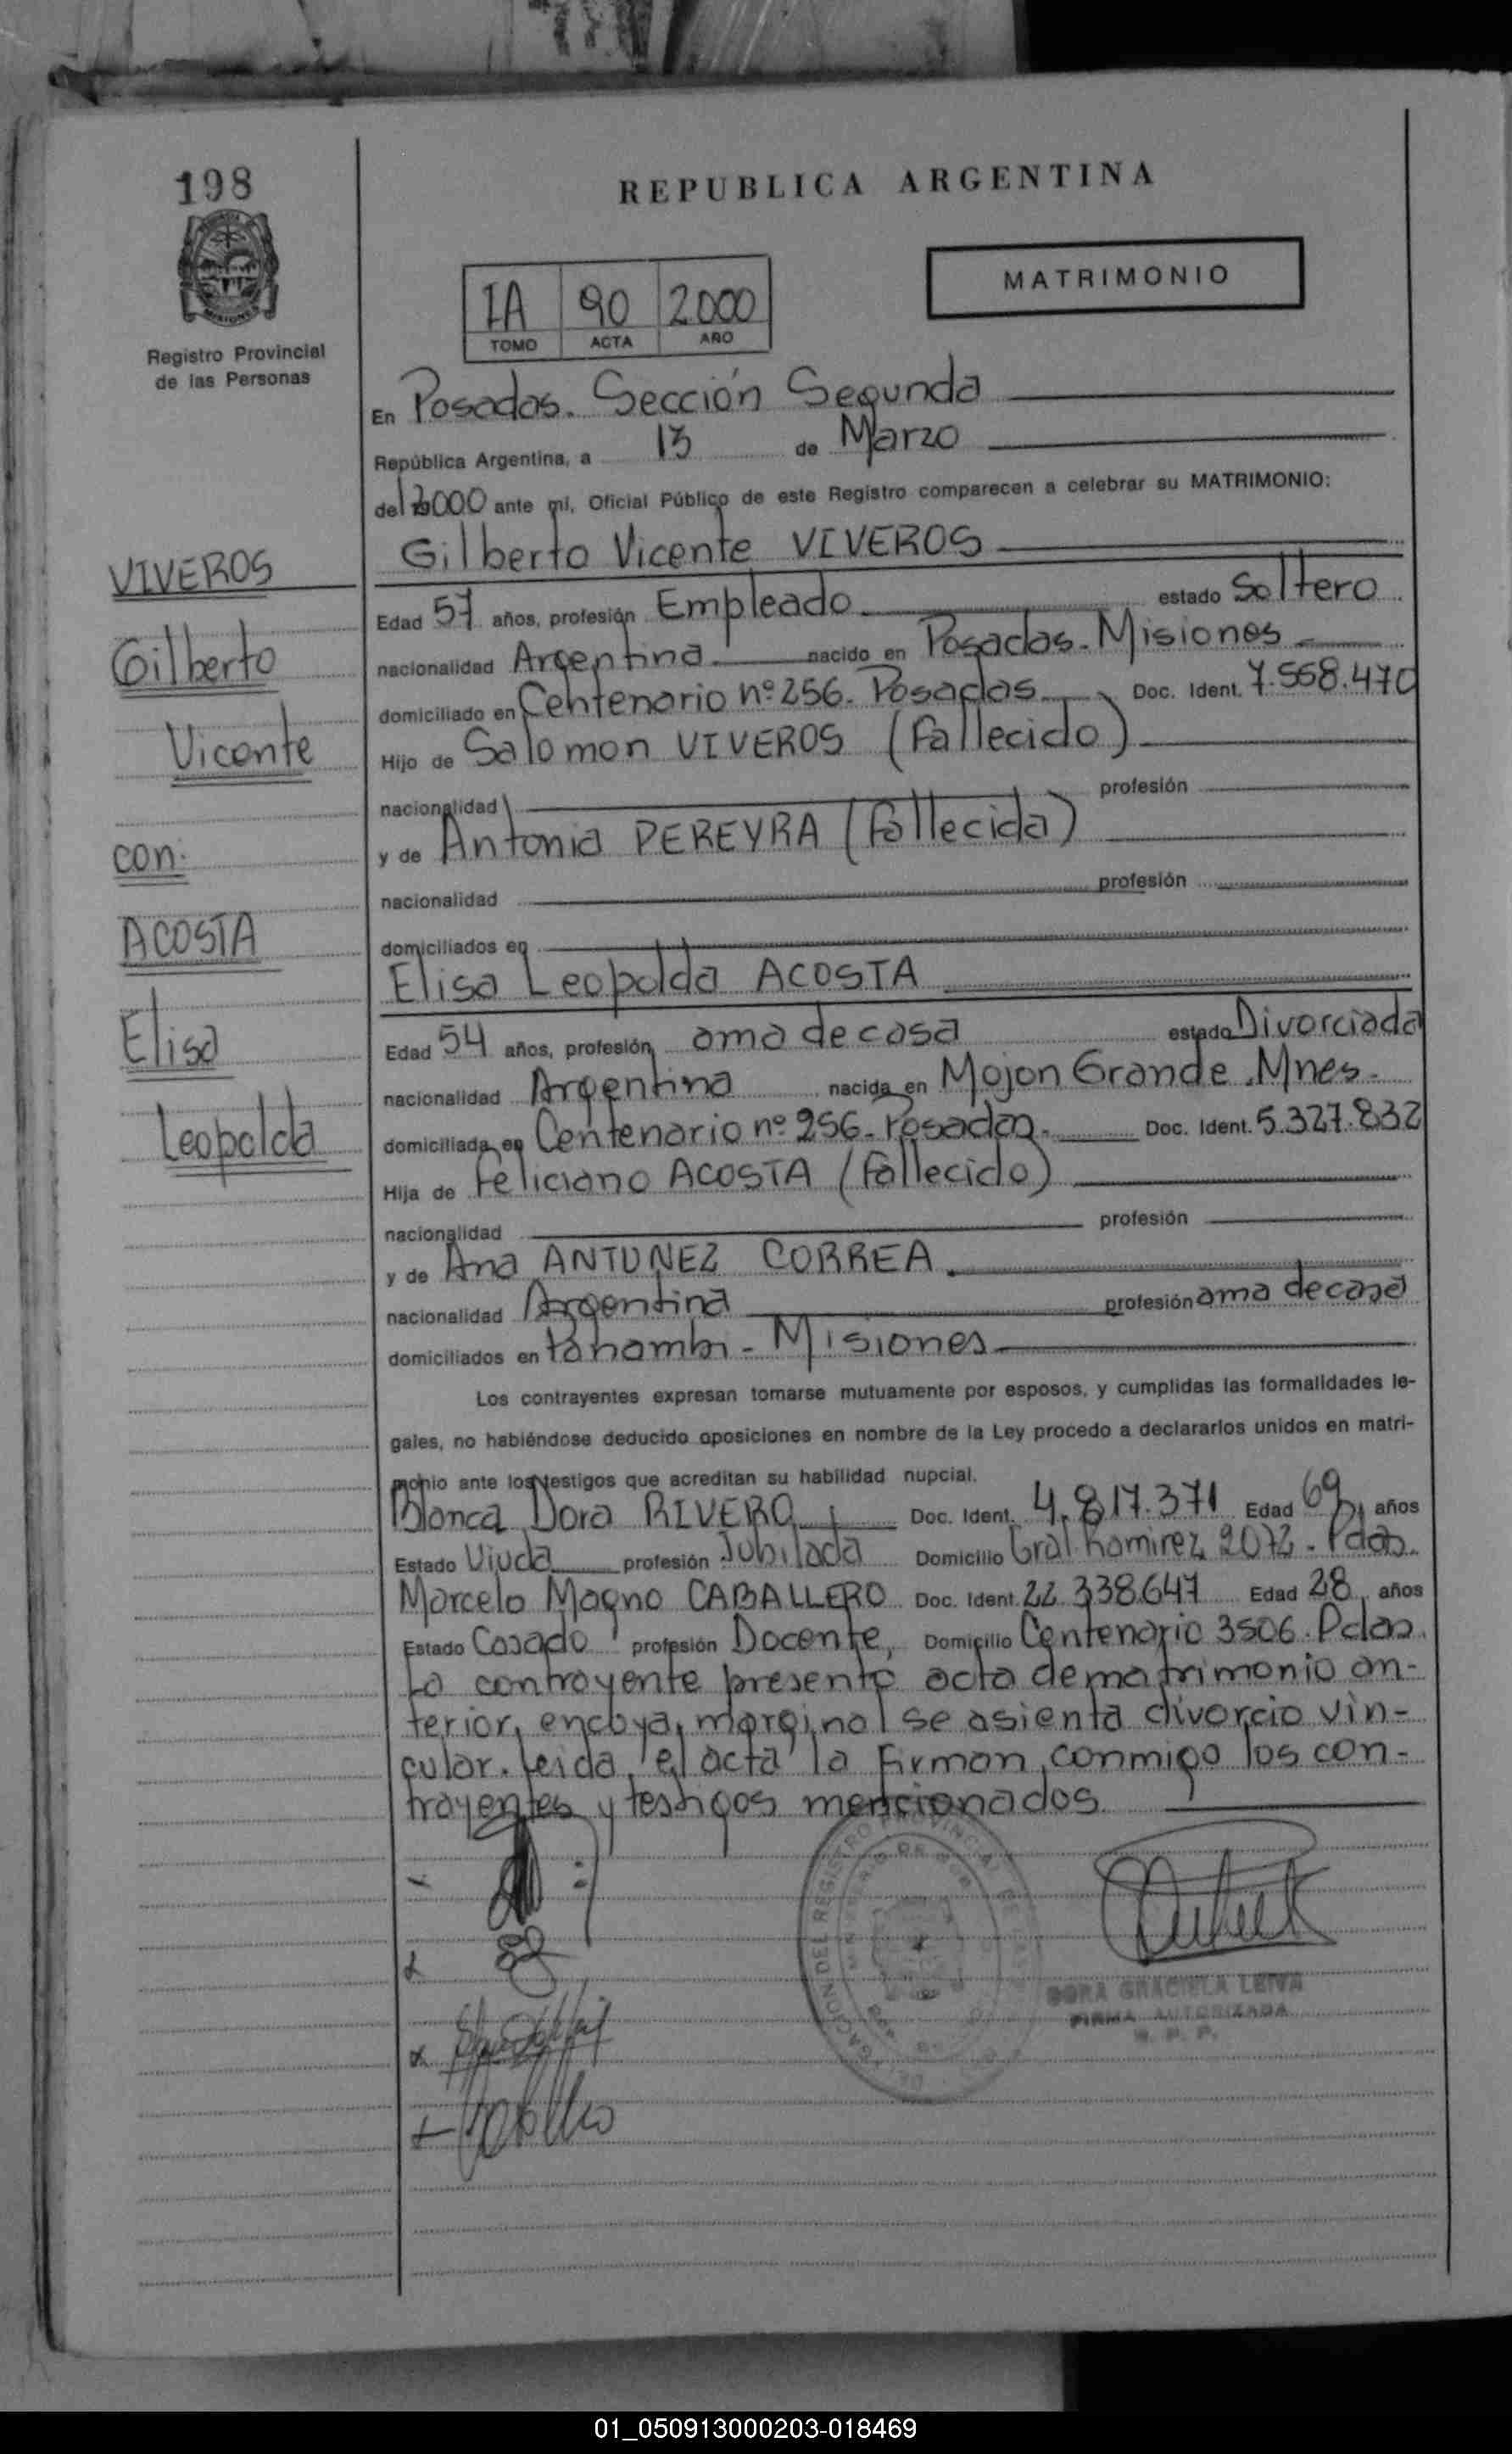 198
REPUBLICA ARGENTINA
MATRIMONIO
IA 90 2000
TOMO ACTA AÑO
Registro Provincial
de las Personas
En Posadas. Sección Segunda
República Argentina, a 13 de Marzo
del 2000 ante mí, Oficial Público de este Registro comparecen a celebrar su MATRIMONIO:
Gilberto Vicente VIVEROS
Edad 57 años, profesión Empleado estado Soltero
nacionalidad Argentina nacido en Posadas - Misiones
domiciliado en Centenario nº 256. Posadas Doc. Ident. 7.558.470
Hijo de Salomon VIVEROS (Fallecido)
nacionalidad profesión
y de Antonia PEREYRA (Fallecida)
nacionalidad profesión
domiciliados en
Elisa Leopolda ACOSTA
Edad 54 años, profesión ama de casa estado Divorciada
nacionalidad Argentina nacida en Mojon Grande. Mnes.
domiciliada en Centenario nº 256. Posadas. Doc. Ident. 5.327.832
Hija de Feliciano ACOSTA (Fallecido)
nacionalidad profesión
y de Ana ANTUNEZ CORREA.
nacionalidad Argentina profesión ama de casa
domiciliados en - Misiones
Los contrayentes expresan tomarse mutuamente por esposos, y cumplidas las formalidades le-
gales, no habiéndose deducido oposiciones en nombre de la Ley procedo a declararlos unidos en matri-
monio ante los testigos que acreditan su habilidad nupcial.
Blanca Dora RIVERO Doc. Ident. 4.817.371 Edad 69 años
Estado Viuda profesión Jubilada Domicilio Gral. Ramirez 2072 - Pdas.
Marcelo Magno CABALLERO Doc. Ident. 22.338.647 Edad 28 años
Estado Casado profesión Docente, Domicilio Centenario 3506. Pdas.
La contrayente presento acta de matrimonio an-
terior, en cuya marginal se asienta divorcio vin-
cular. Leida el acta la firman conmigo los con-
trayentes y testigos mencionados.
VIVEROS
Gilberto
Vicente
con:
ACOSTA
Elisa
Leopolda
DELEGACION DEL REGISTRO PROVINCIAL DE LAS
GRACIELA LEIVA
FIRMA AUTORIZADA
R. P. P.
01_050913000203-018469